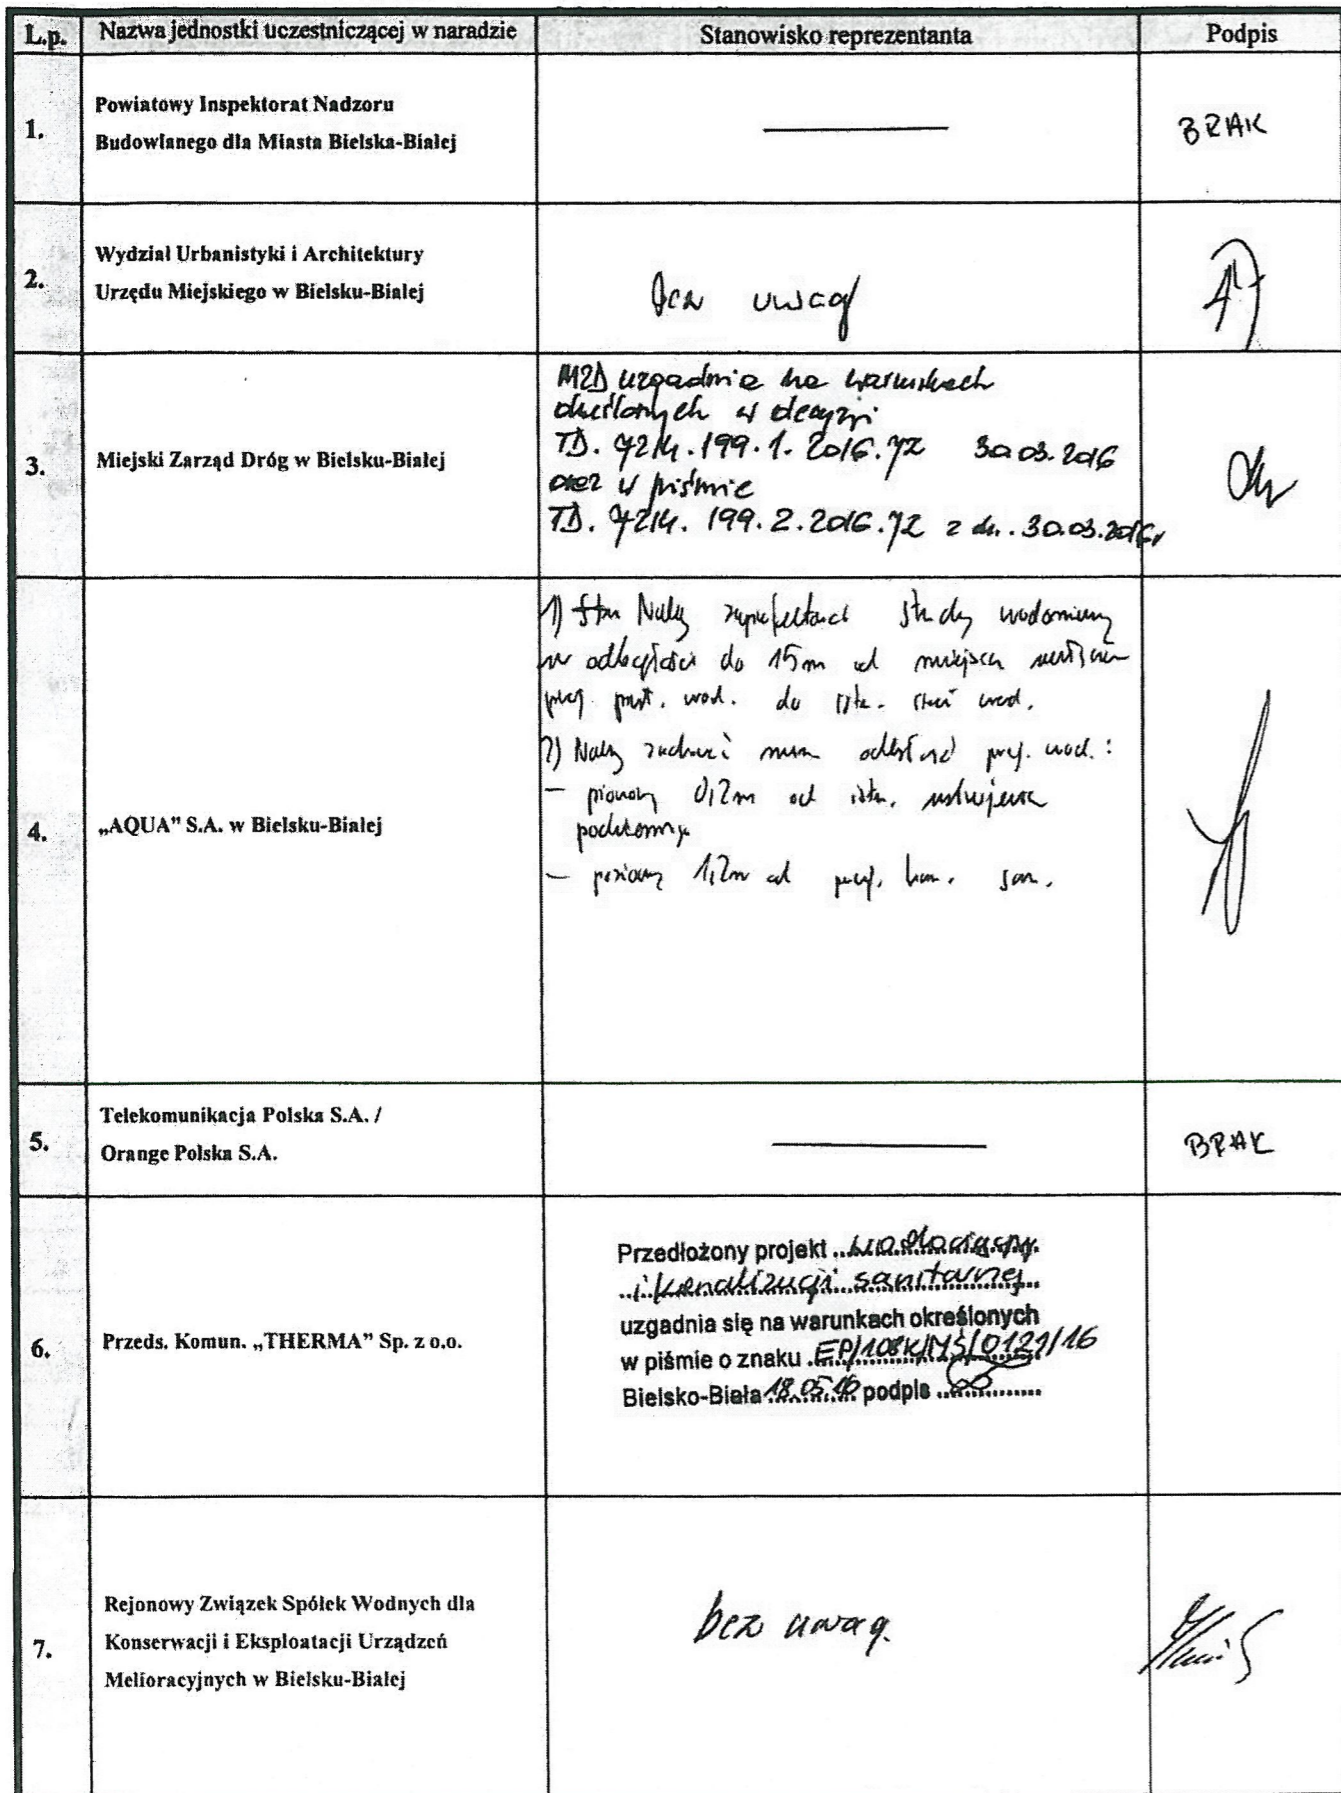 L.p. Nazwa jednostki uczestniczącej w naradzie Stanowisko reprezentanta Podpis
1. Powiatowy Inspektorat Nadzoru
Budowlanego dla Miasta Bielska-Białej
BRAK
2. Wydział Urbanistyki i Architektury
Urzędu Miejskiego w Bielsku-Białej
bez uwag
3. Miejski Zarząd Dróg w Bielsku-Białej
MZD uzgadnia na warunkach
określonych w decyzji
TD. 7214.199.1.2016.JZ 30.03.2016
oraz w piśmie
TD. 7214.199.2.2016.JZ z dn. 30.03.2016r
4. „AQUA" S.A. w Bielsku-Białej
1) Należy zaprojektować studz wodomierz
w odległości do 15m od miejsca
proj. wod. do istn. sieci wod.
2) Należy zachować odległość proj. wod.:
- pionową 0,2m od istn. uzbrojenia
podziemn
- poziomą 1,2m od proj. kan. san.
5. Telekomunikacja Polska S.A. /
Orange Polska S.A.
BRAK
6. Przeds. Komun. „THERMA" Sp. z o.o.
Przedłożony projekt wodociągowy
i kanalizacji sanitarnej
uzgadnia się na warunkach określonych
w piśmie o znaku EP/108K/MŚ/0121/16
Bielsko-Biała 18.05.16 podpis
7. Rejonowy Związek Spółek Wodnych dla
Konserwacji i Eksploatacji Urządzeń
Melioracyjnych w Bielsku-Białej
bez uwag.